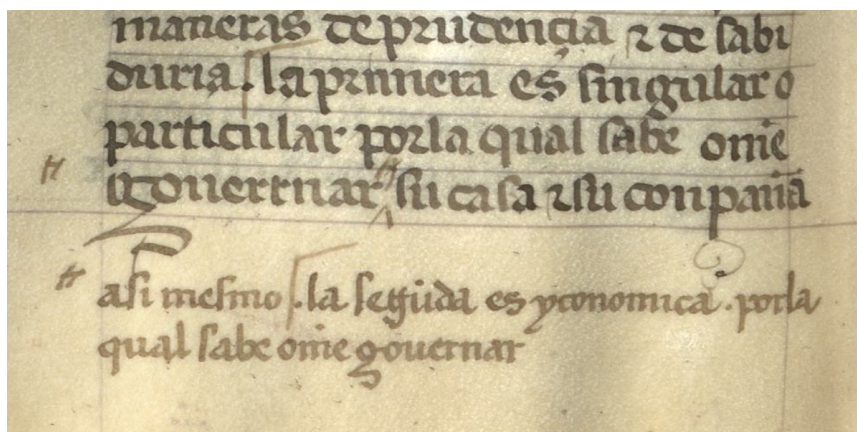 maneras de prudencia ⁊ de sabi
duria. la primera es singular o
particular por la qual sabe ome
gouernar su casa ⁊ su conpaña
asi mesmo. la segũda es yconomica. por la
qual sabe ome gouernar